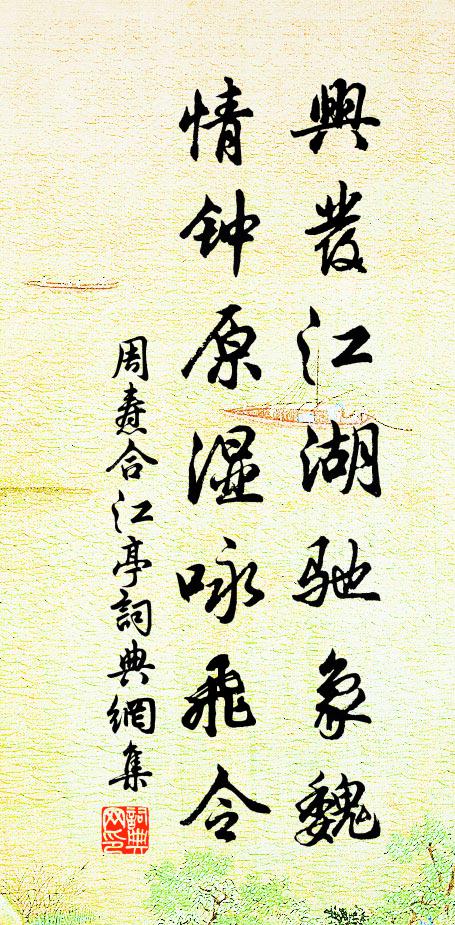 興發江湖馳象魏
情钟原湿咏飛令
周燾合江亭詞典網集
詞典网印